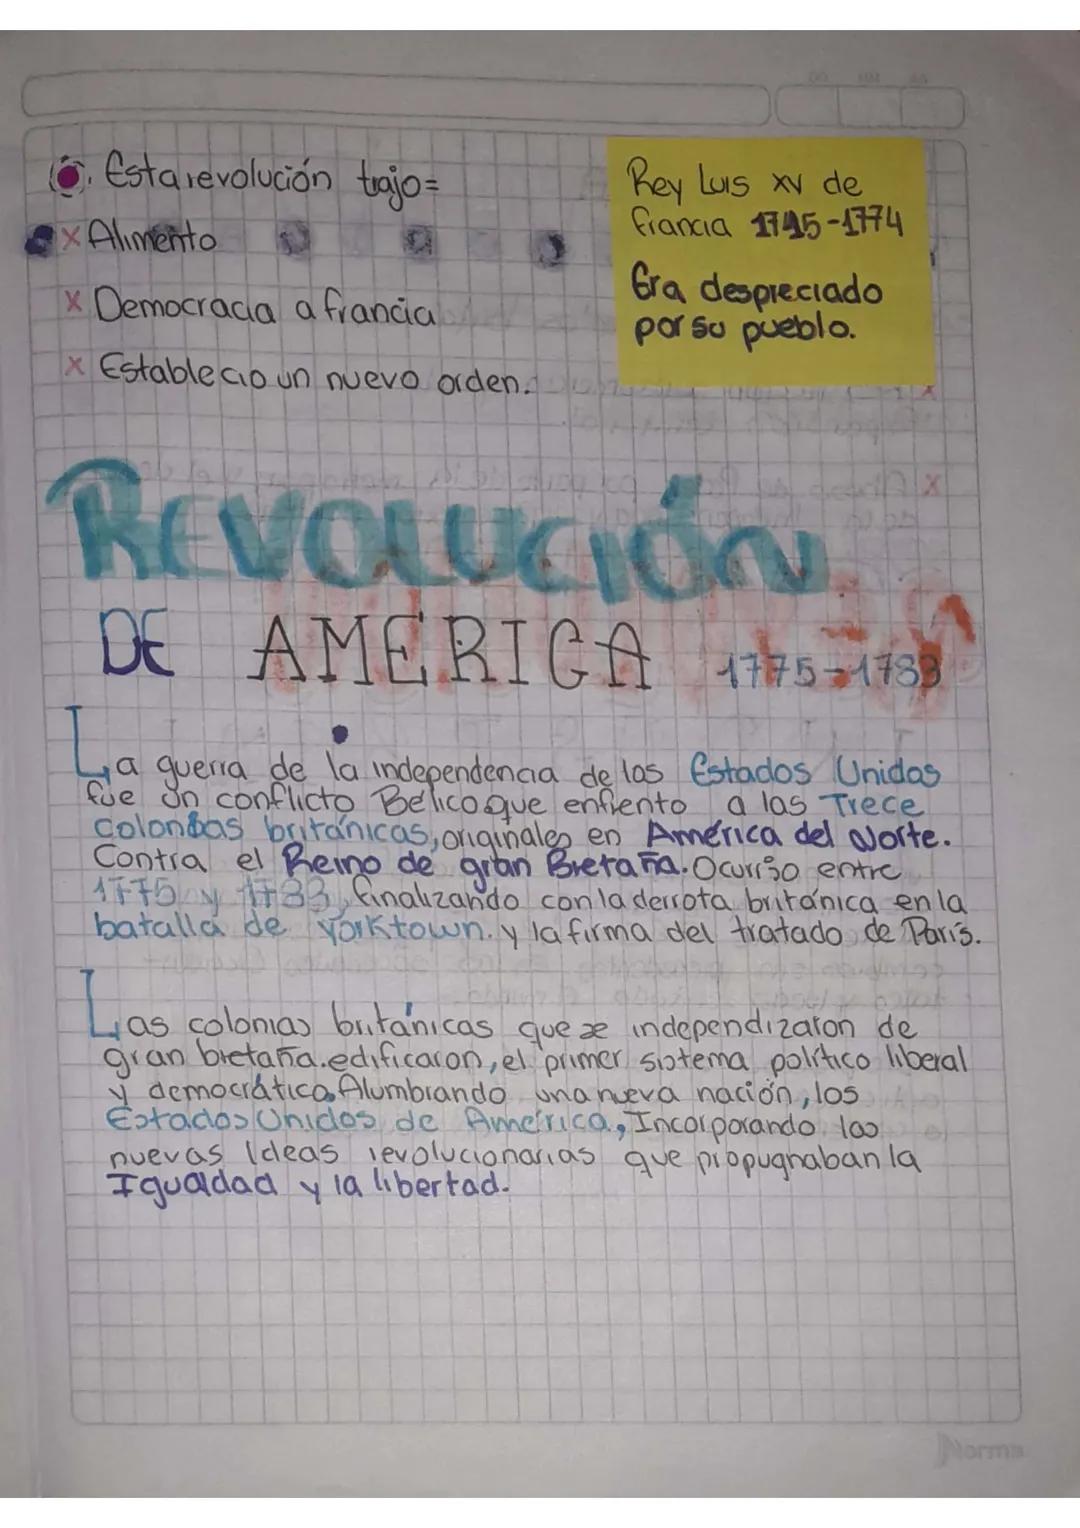 Esta revolución trajo=
x Alimento
x Democracia a francia
x Establecio un nuevo orden.
Rey Luis XV de
francia 1715-1774
Era despreciado
por su pueblo.
REVOLUCIÓN
DE AMÉRICA 1775-1783
La guerra de la independencia de los Estados Unidos
fue un conflicto Belico que enfrento a las Trece
colonias británicas, originales en América del Norte.
Contra el Reino de gran Bretaña. Ocurrio entre
1775 y 1783, finalizando con la derrota británica en la
batalla de yorktown. y la firma del tratado de París.
Las colonias británicas que se independizaron de
gran bretaña. edificaron, el primer sistema político liberal
y democrática, Alumbrando una nueva nación, los
Estados Unidos de América, Incorporando las
nuevas Ideas revolucionarias que propugnaban la
Igualdad y la libertad.
Norma